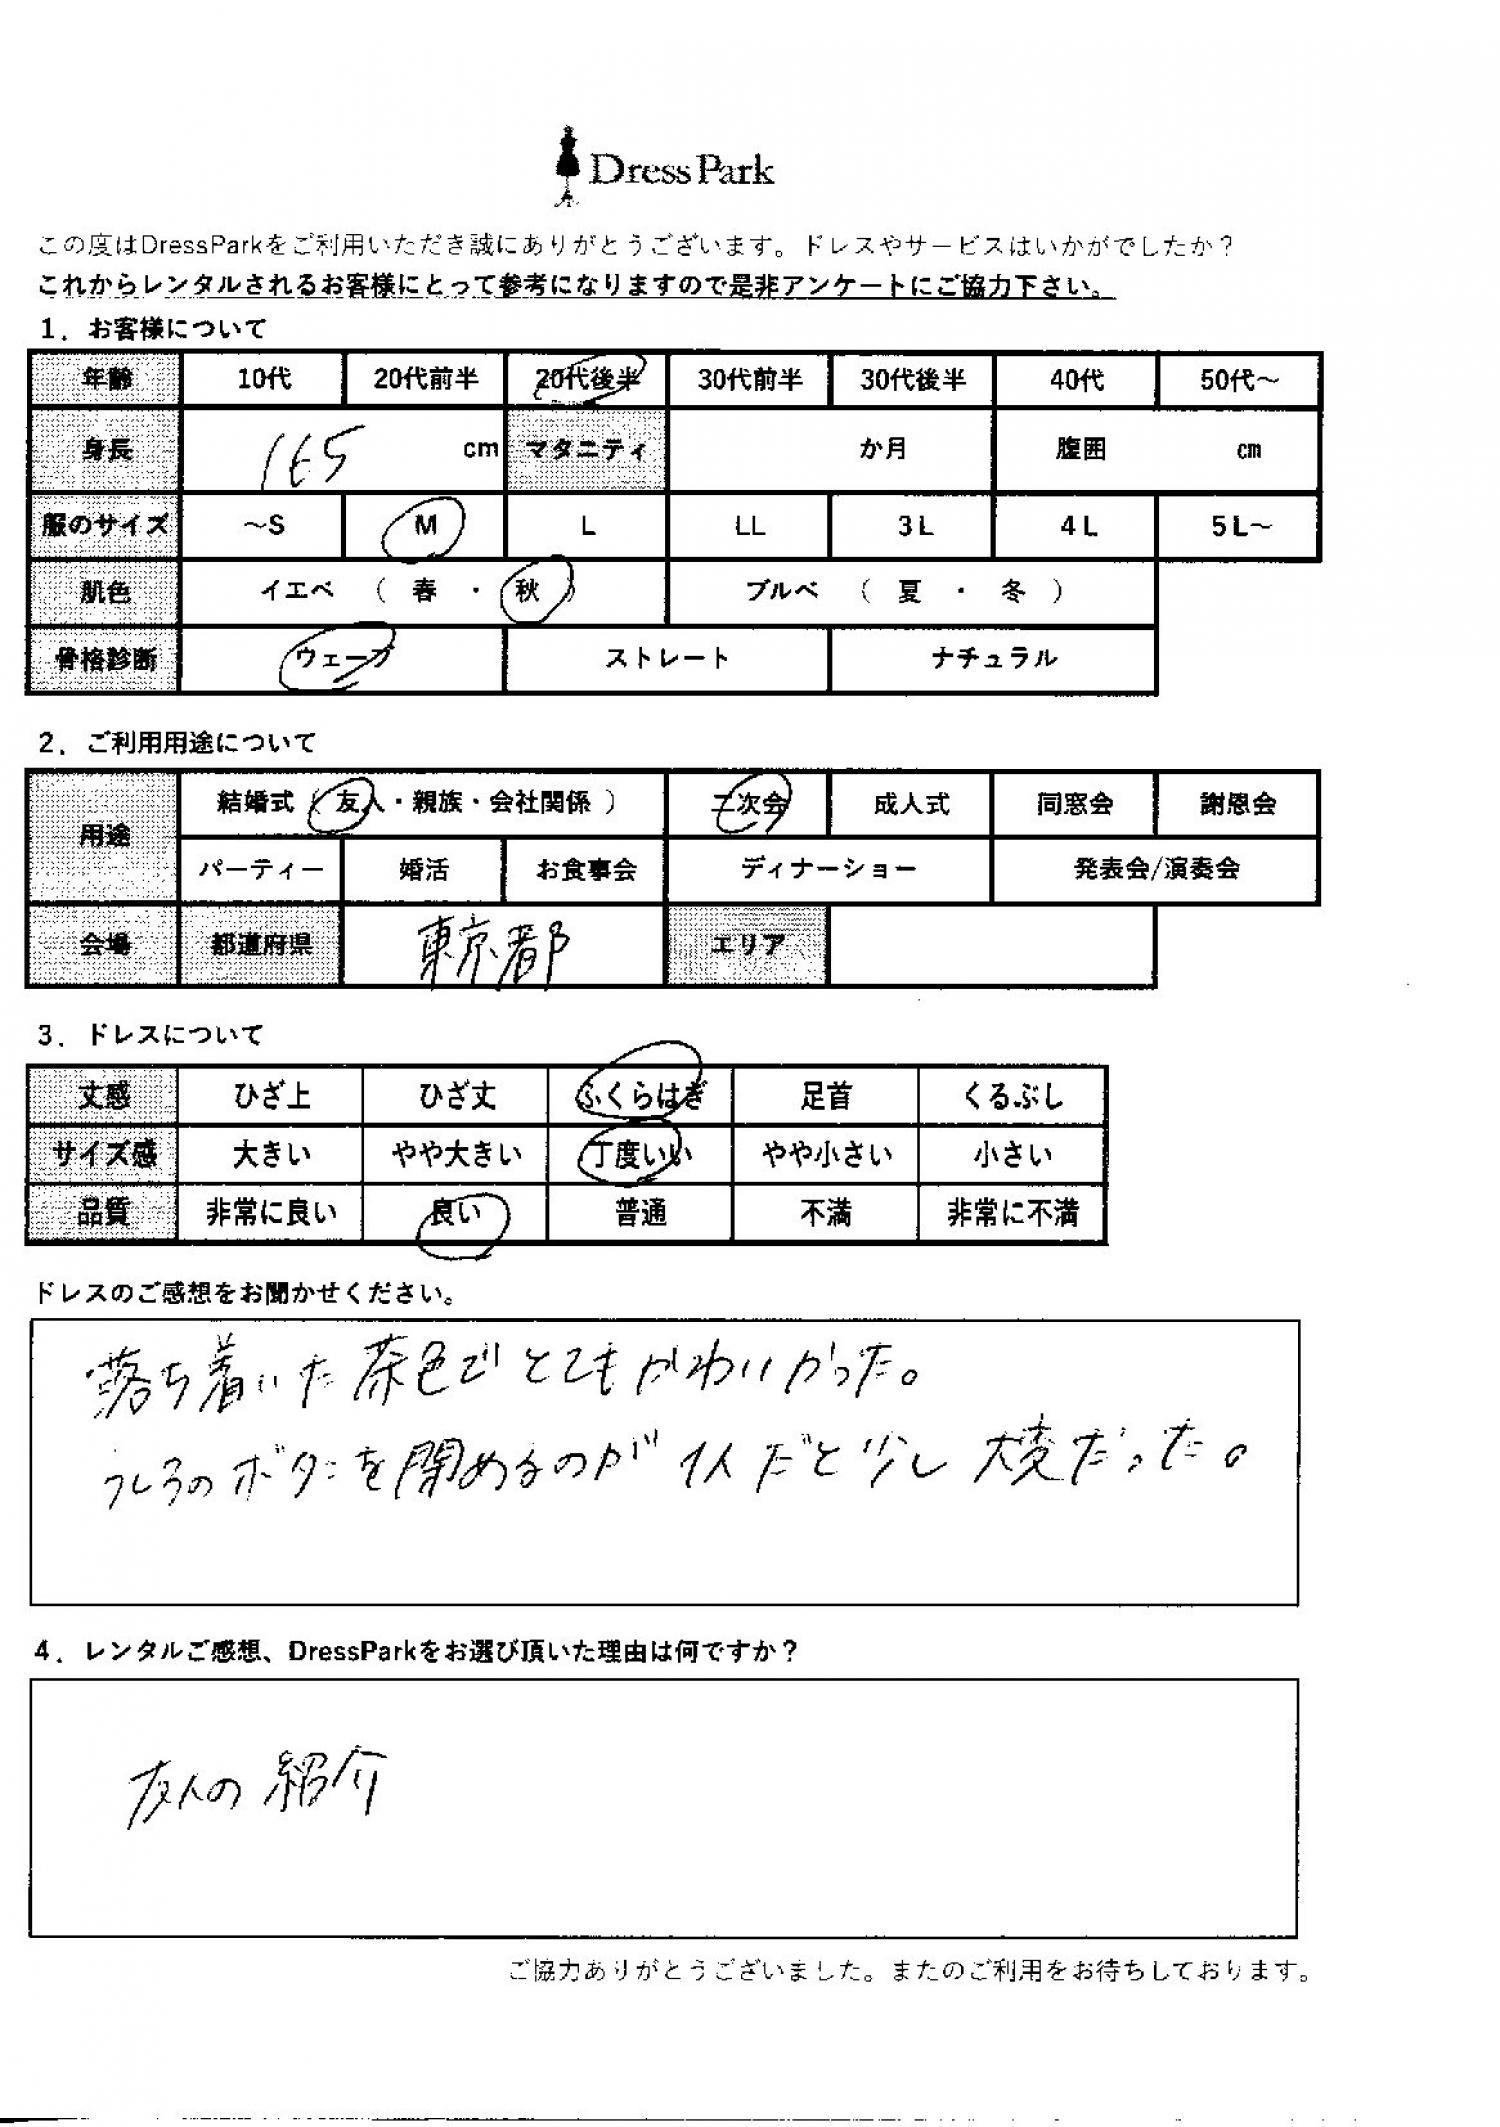 Dress Park
この度はDressParkをご利用いただき誠にありがとうございます。ドレスやサービスはいかがでしたか？
これからレンタルされるお客様にとって参考になりますので是非アンケートにご協力下さい。
1．お客様について
年齢 10代 20代前半 20代後半 30代前半 30代後半 40代 50代～
身長 165 cm マタニティ か月 腹囲 cm
服のサイズ ～S M L LL 3L 4L 5L～
肌色 イエベ （ 春 ・ 秋 ） ブルベ （ 夏 ・ 冬 ）
骨格診断 ウェーブ ストレート ナチュラル
2．ご利用用途について
用途 結婚式（ 友人・親族・会社関係 ） 二次会 成人式 同窓会 謝恩会
パーティー 婚活 お食事会 ディナーショー 発表会/演奏会
会場 都道府県 東京都 エリア
3．ドレスについて
丈感 ひざ上 ひざ丈 ふくらはぎ 足首 くるぶし
サイズ感 大きい やや大きい 丁度いい やや小さい 小さい
品質 非常に良い 良い 普通 不満 非常に不満
ドレスのご感想をお聞かせください。
落ち着いた茶色でとてもかわいかった。
うしろのボタンを閉めるのが1人だと少し大変だった。
4．レンタルご感想、DressParkをお選び頂いた理由は何ですか？
友人の紹介
ご協力ありがとうございました。またのご利用をお待ちしております。